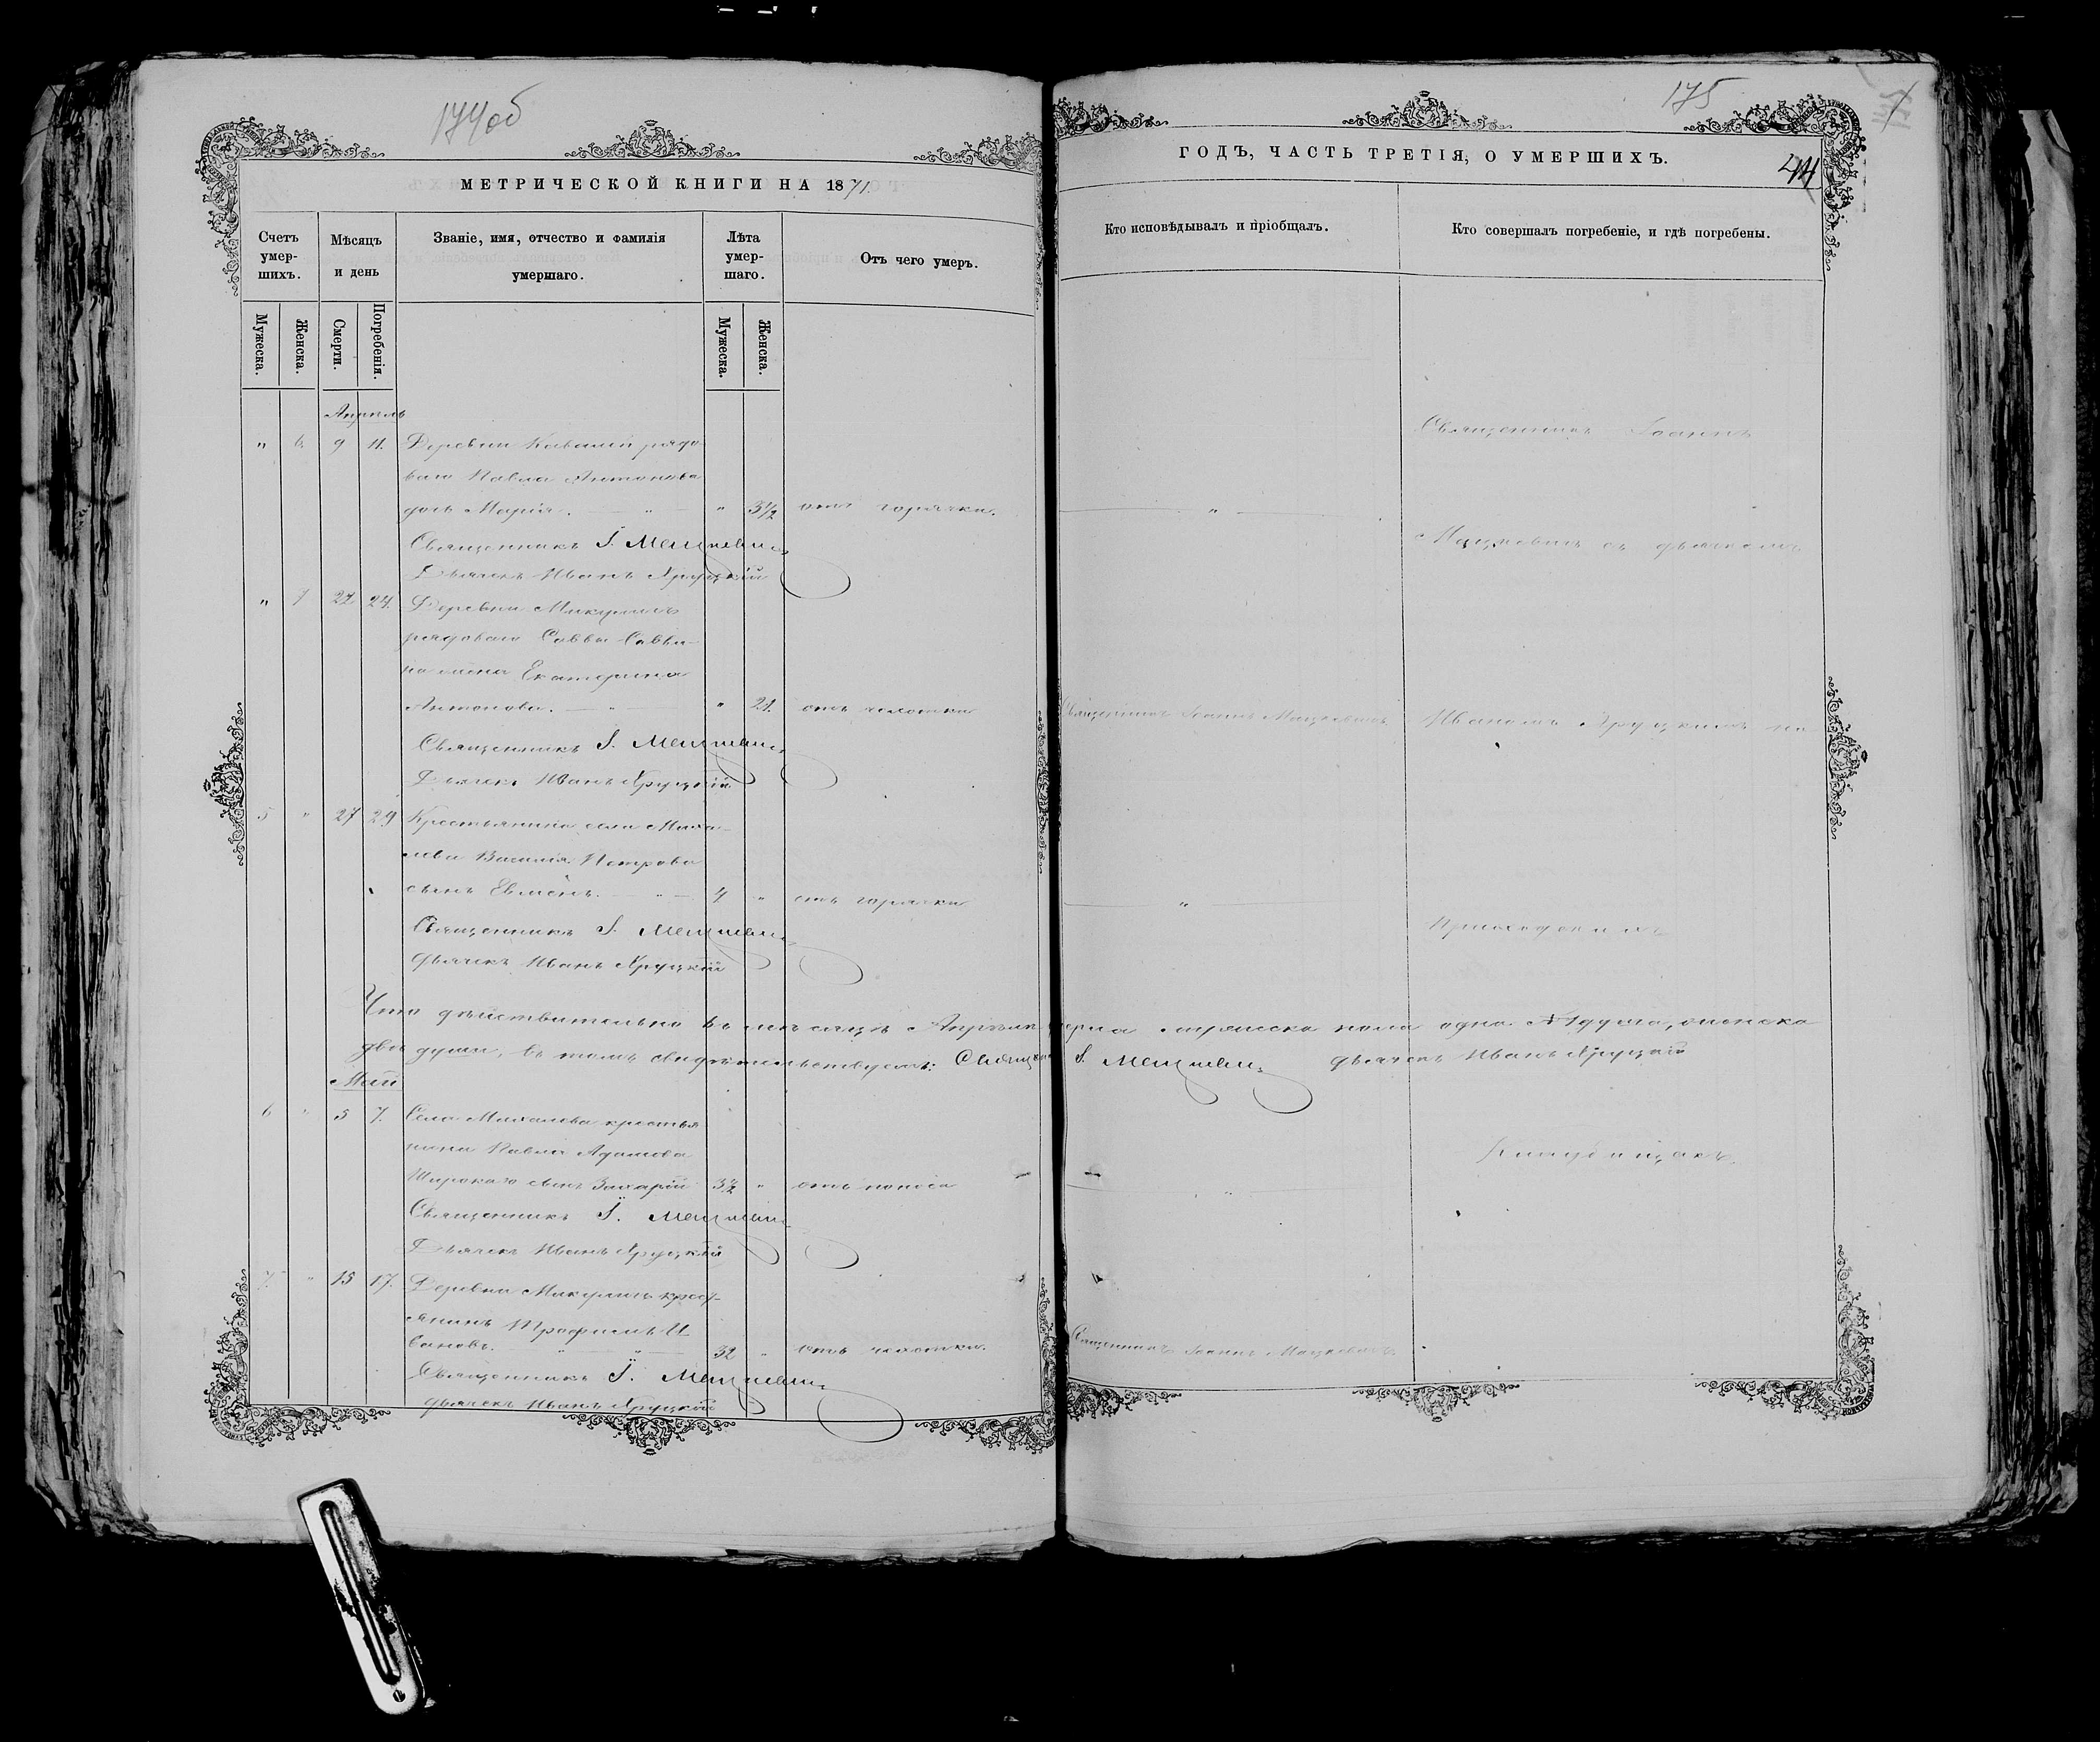 174об
МЕТРИЧЕСКОЙ КНИГИ НА 1871.
Счетъ умер-шихъ.
Мѣсяцъ и день
Званіе, имя, отчество и фамилія умершаго.
Лѣта умер-шаго.
Отъ чего умеръ.
Мужеска.
Женска.
Смерти.
Погребенія.
Мужеска.
Женска.
Апрѣль
" 6. 9 11. Деревни рядо-
ваго Павла Антонова
дочь Марія. — " — " 3½ отъ горячки.
Священникъ І. Мацкевичъ
Дьячекъ Иванъ Хруцкій
" 7 22 24. Деревни Микуличъ
рядоваго Саввы
жена Екатерина
Антонова. — " — " 21. отъ чахотки
Священникъ І. Мацкевичъ
Дьячекъ Иванъ Хруцкій
5 " 27 29 Крестьянина села Миха-
лева Василія Петрова
сынъ — " — 4 " отъ горячки
Священникъ І. Мацкевичъ
Дьячекъ Иванъ Хруцкій
Что дѣйствительно въ мѣсяцѣ Апрѣлѣ мужеска пола одна душа, женска
двѣ души, въ томъ свидѣтельствуемъ: Священникъ І. Мацкевичъ Дьячекъ Иванъ Хруцкій
Май
6 " 5 7. Села Михалева крестья
нина Павла Адамова
сынъ Захарій 3½ " отъ поноса
Священникъ І. Мацкевичъ
Дьячекъ Иванъ Хруцкій
7. " 15 17. Деревни Микуличъ крест-
янинъ Трофимъ И
вановъ. " — " — 32 " отъ чахотки.
Священникъ І. Мацкевичъ
Дьячекъ Иванъ Хруцкій
175
44
ГОДЪ, ЧАСТЬ ТРЕТІЯ, О УМЕРШИХЪ.
Кто исповѣдывалъ и пріобщалъ.
Кто совершалъ погребеніе, и гдѣ погребены.
Священникъ Іоаннъ
— " —
Мацкевичъ съ дьячкомъ
Священникъ Іоаннъ Мацкевичъ
Иваномъ Хруцкимъ на
— " —
приходскихъ
кладбищахъ.
— " —
Священникъ Іоаннъ Мацкевичъ